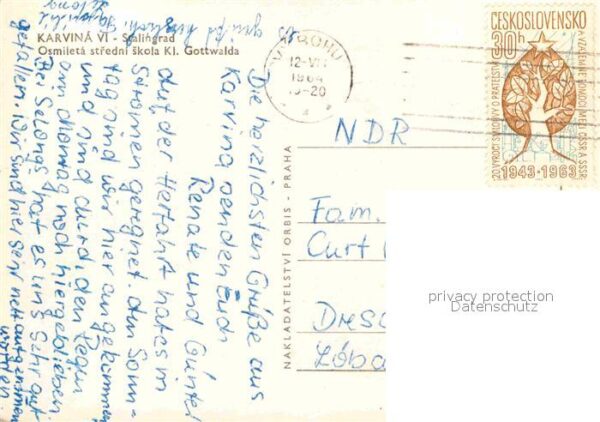 KARVINÁ VI - Stalingrad
Osmiletá střední škola Kl. Gottwalda
Die herzlichsten Grüße aus
Karvina senden Euch
Renate und Günter
Auf der Herfahrt hat es in
Strömen geregnet. Am Sonn-
tag sind wir hier angekommen
und sind durch den Regen
am Montag noch hiergeblieben
Bei Selongs hat es uns sehr gut
gefallen. Wir sind hier sehr nett aufgenommen
worden.
NAKLADATELSTVÍ ORBIS - PRAHA
BOHU
12-VII
1964
19-20
ČESKOSLOVENSKO
30h
20. VÝROČÍ SMLOUVY O PŘÁTELSTVÍ
A VZÁJEMNÉ POMOCI MEZI ČSSR A SSSR
1943-1963
NDR
Fam.
Curt
Dresd
Löba
privacy protection
Datenschutz